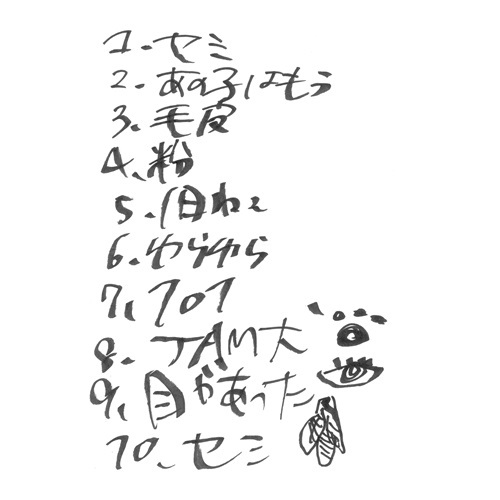 1、セミ
2、あの子はもう
3、毛皮
4、粉
5、1日ねて
6、ゆらゆら
7、フロア
8、JAM大
9、目があった
10、セミ